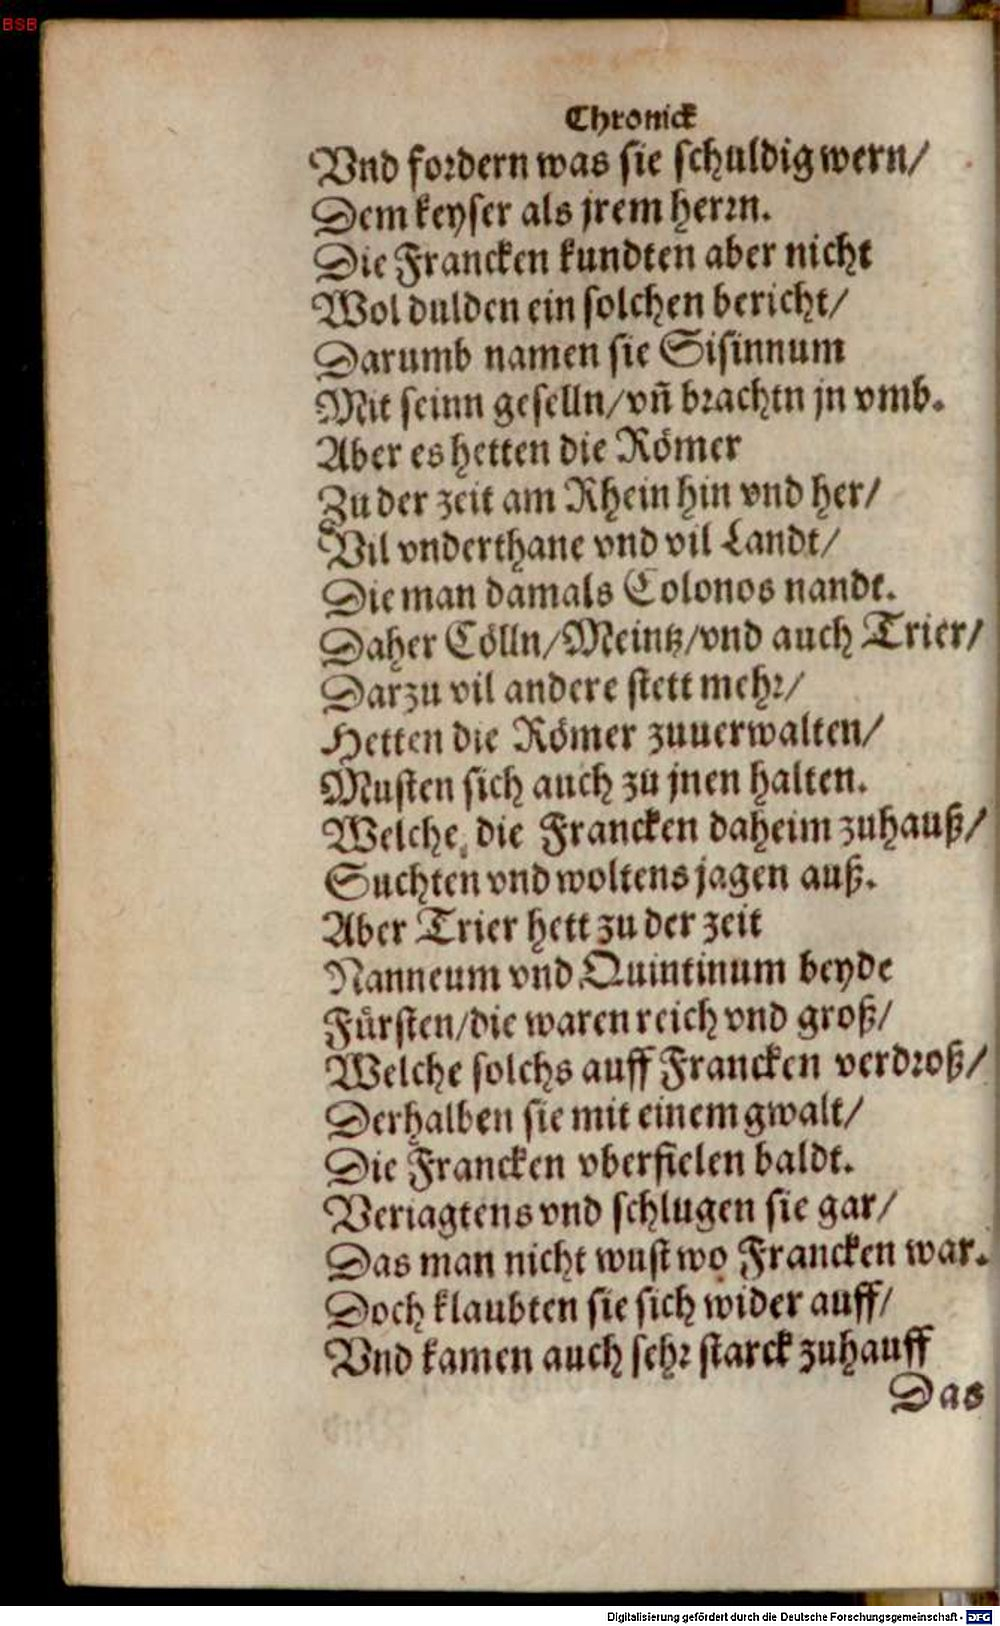 BSB
Chronick
Vnd fordern was sie schuldig wern/
Dem keyser als jrem herrn.
Die Francken kundten aber nicht
Wol dulden ein solchen bericht/
Darumb namen sie Sisinnum
Mit seinn geselln/vn̄ brachtn jn vmb.
Aber es hetten die Römer
Zu der zeit am Rhein hin vnd her/
Vil vnderthane vnd vil Landt/
Die man damals Colonos nandt.
Daher Cölln/Meintz/vnd auch Trier/
Darzu vil andere stett mehr/
Hetten die Römer zuuerwalten/
Musten sich auch zu jnen halten.
Welche die Francken daheim zuhauß/
Suchten vnd woltens jagen auß.
Aber Trier hett zu der zeit
Nanneum vnd Quintinum beyde
Fürsten/die waren reich vnd groß/
Welche solchs auff Francken verdroß/
Derhalben sie mit einem gwalt/
Die Francken vberfielen baldt.
Veriagtens vnd schlugen sie gar/
Das man nicht wust wo Francken war.
Doch klaubten sie sich wider auff/
Vnd kamen auch sehr starck zuhauff
Das
Digitalisierung gefördert durch die Deutsche Forschungsgemeinschaft - DFG